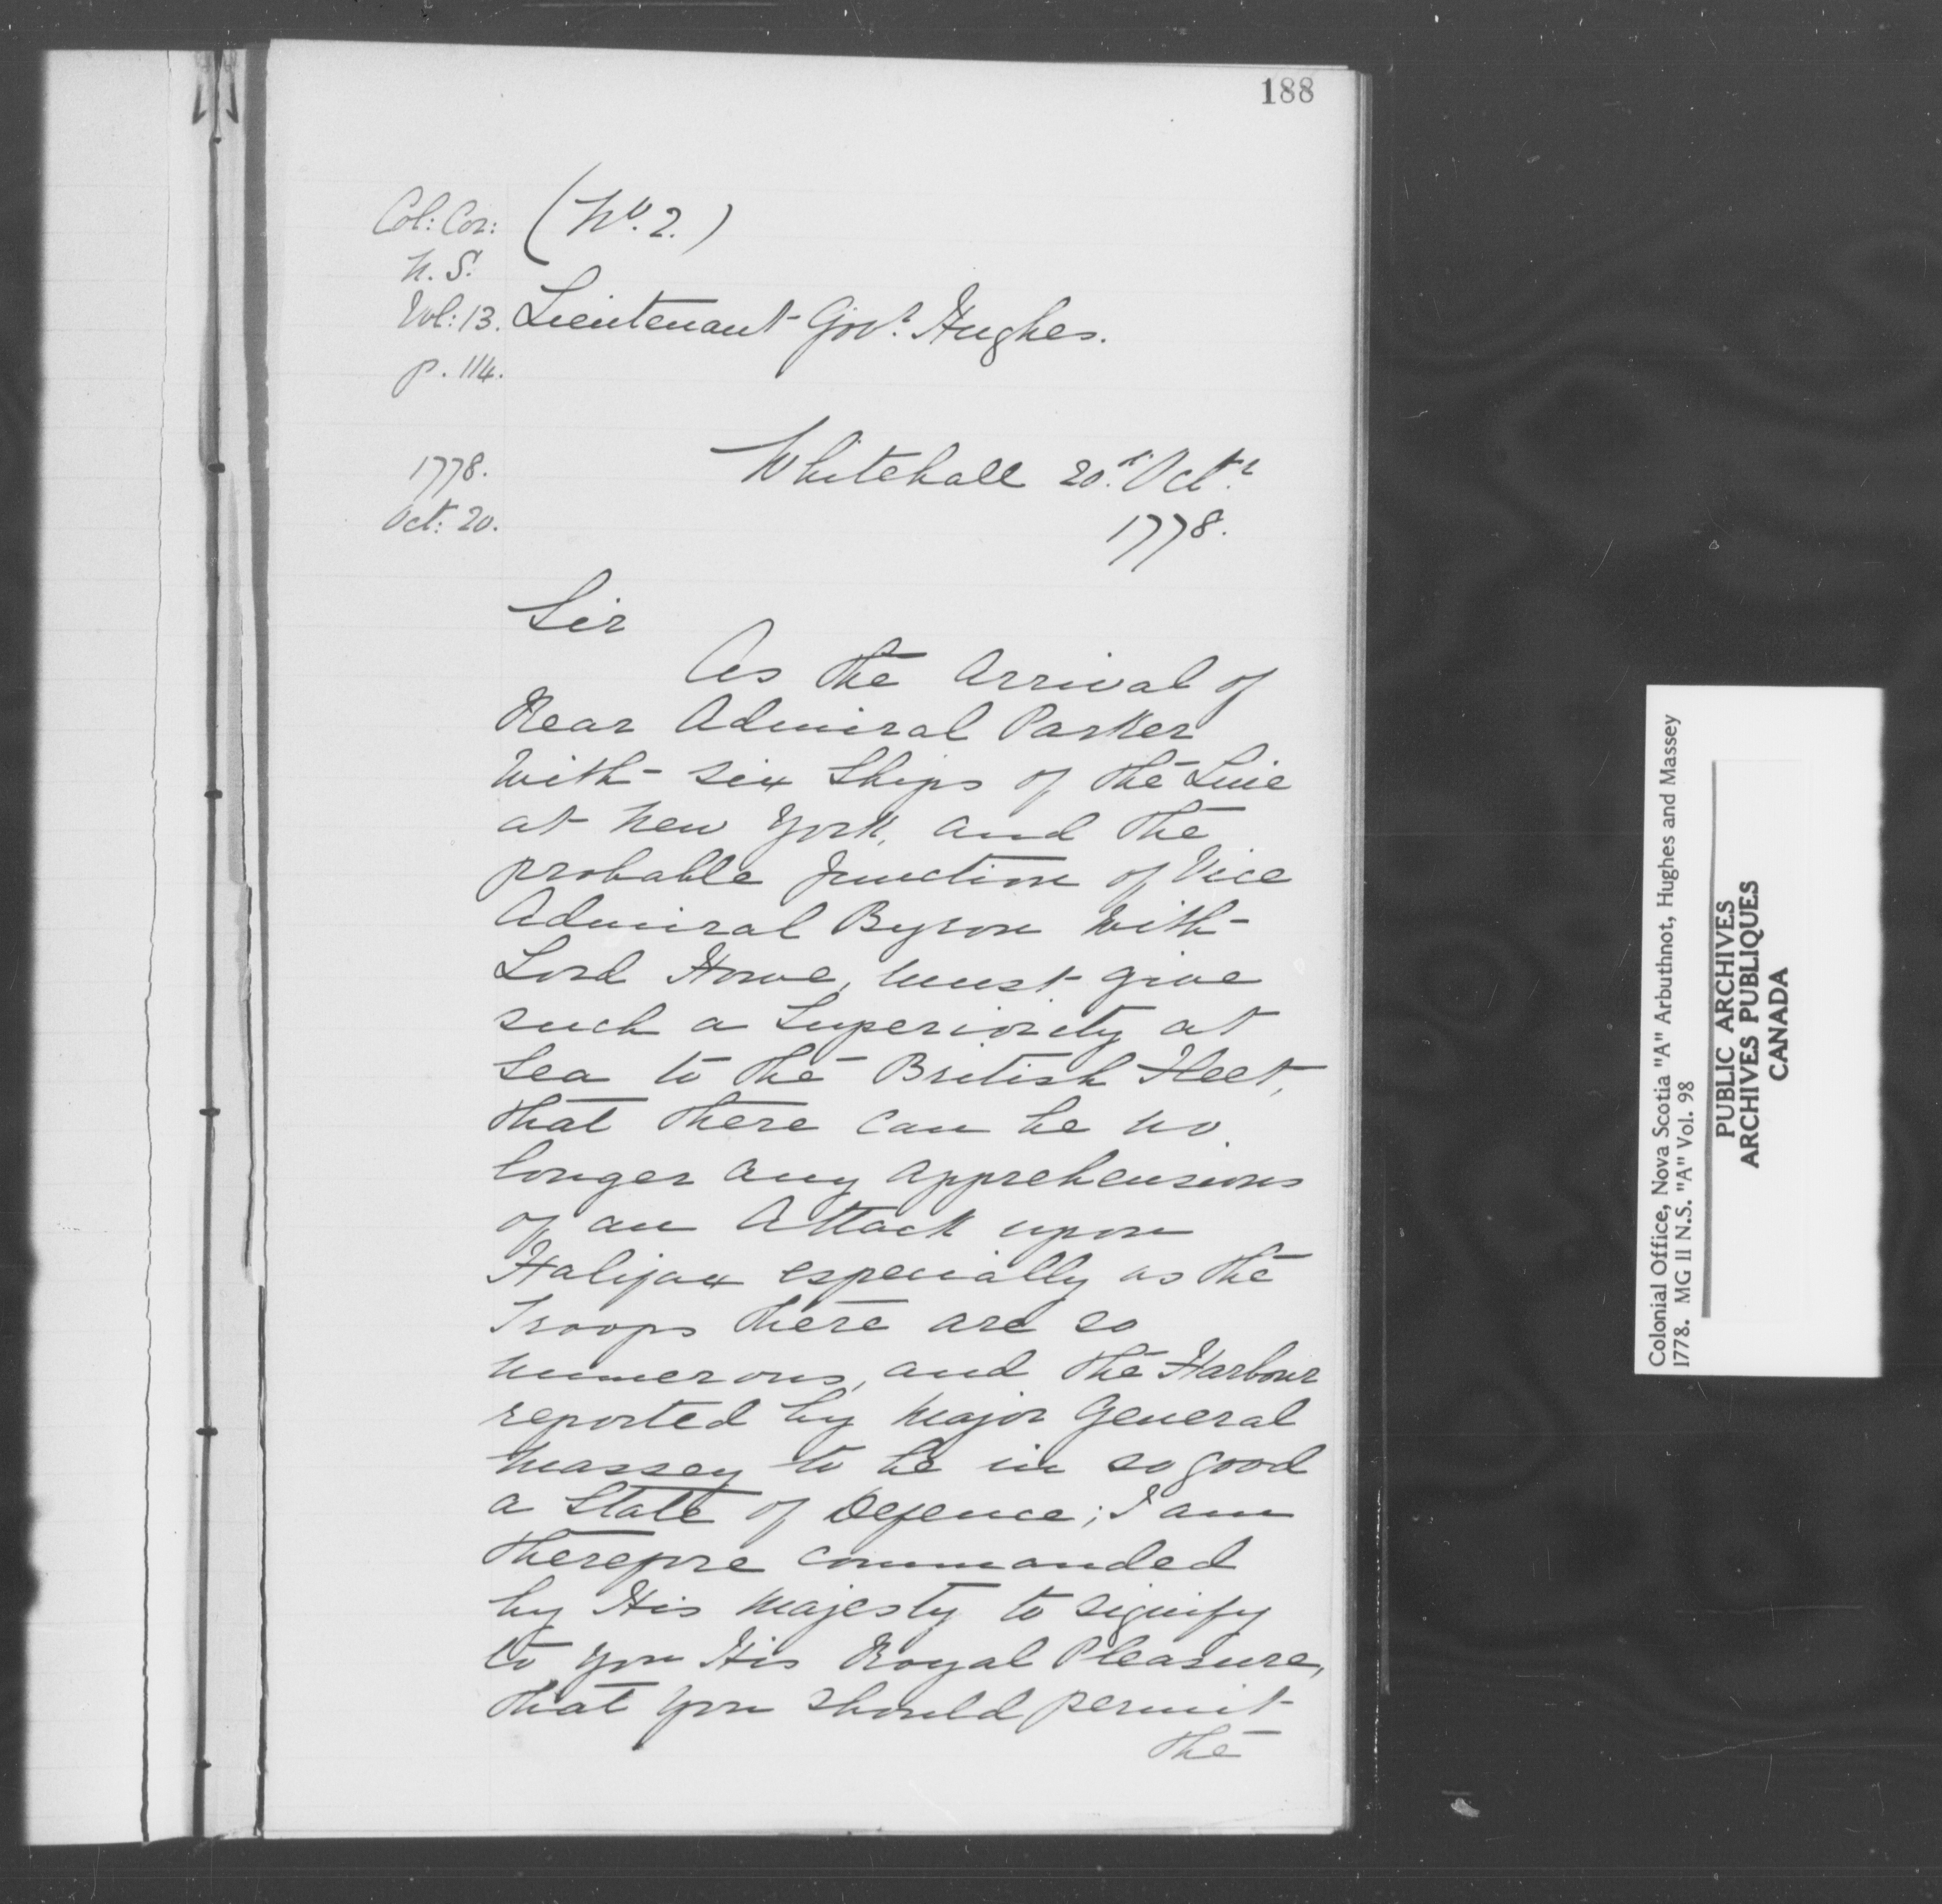 188
Col: Cor:
N. S.
Vol: 13.
p. 114.
(No. 2.)
Lieutenant Govr. Hughes.
1778.
Oct: 20.
Whitehall 20th Octr.
1778.
Sir
As the Arrival of
Rear Admiral Parker
with six Ships of the Line
at New York, and the
probable Junction of Vice
Admiral Byron with
Lord Howe, must give
such a Superiority at
Sea to the British Fleet,
that there can be no
longer any apprehensions
of an Attack upon
Halifax especially as the
Troops there are so
numerous, and the Harbour
reported by Major General
Massey to be in so good
a State of Defence; I am
therefore commanded
by His Majesty to signify
to you His Royal Pleasure,
that you should permit
the
Colonial Office, Nova Scotia "A" Arbuthnot, Hughes and Massey
1778. MG 11 N.S. "A" Vol. 98
PUBLIC ARCHIVES
ARCHIVES PUBLIQUES
CANADA